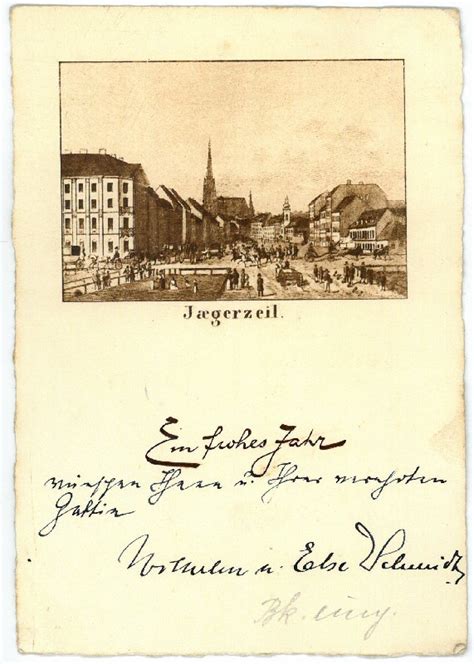 Jægerzeil.
Ein frohes Jahr
wünschen Ihnen u Ihrer verehrten
Gattin
Wilhelm u. Else Schmidt